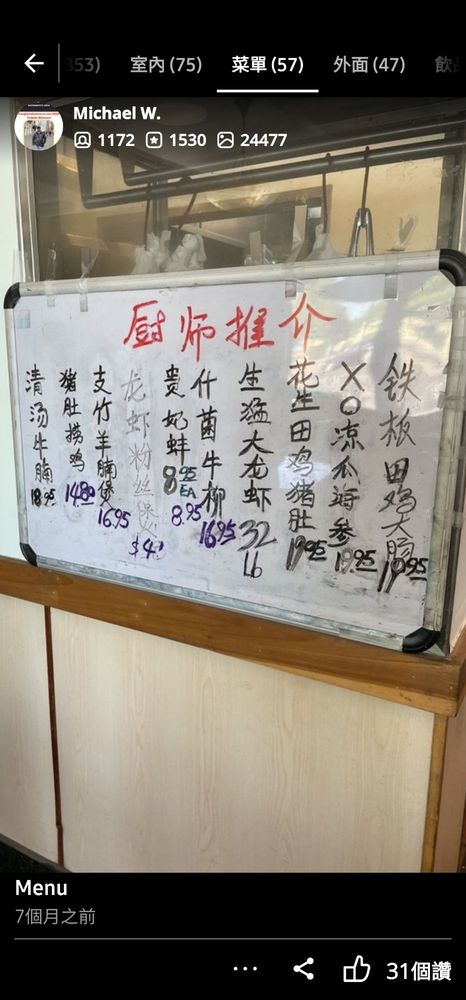 353)
室內 (75)
菜單 (57)
外面 (47)
飲
Michael W.
1172 1530 24477
厨师推介
清汤牛腩 18.95
猪肚捞鸡 14.80
支竹羊腩煲 16.95
龙虾粉丝煲
贵妃蚌 8.95 EA 8.95
什菌牛柳 16.95
生猛大龙虾 32 Lb
花生田鸡猪肚 19.95
XO凉瓜海参 19.95
铁板田鸡大肠 19.95
Menu
7個月之前
31個讚